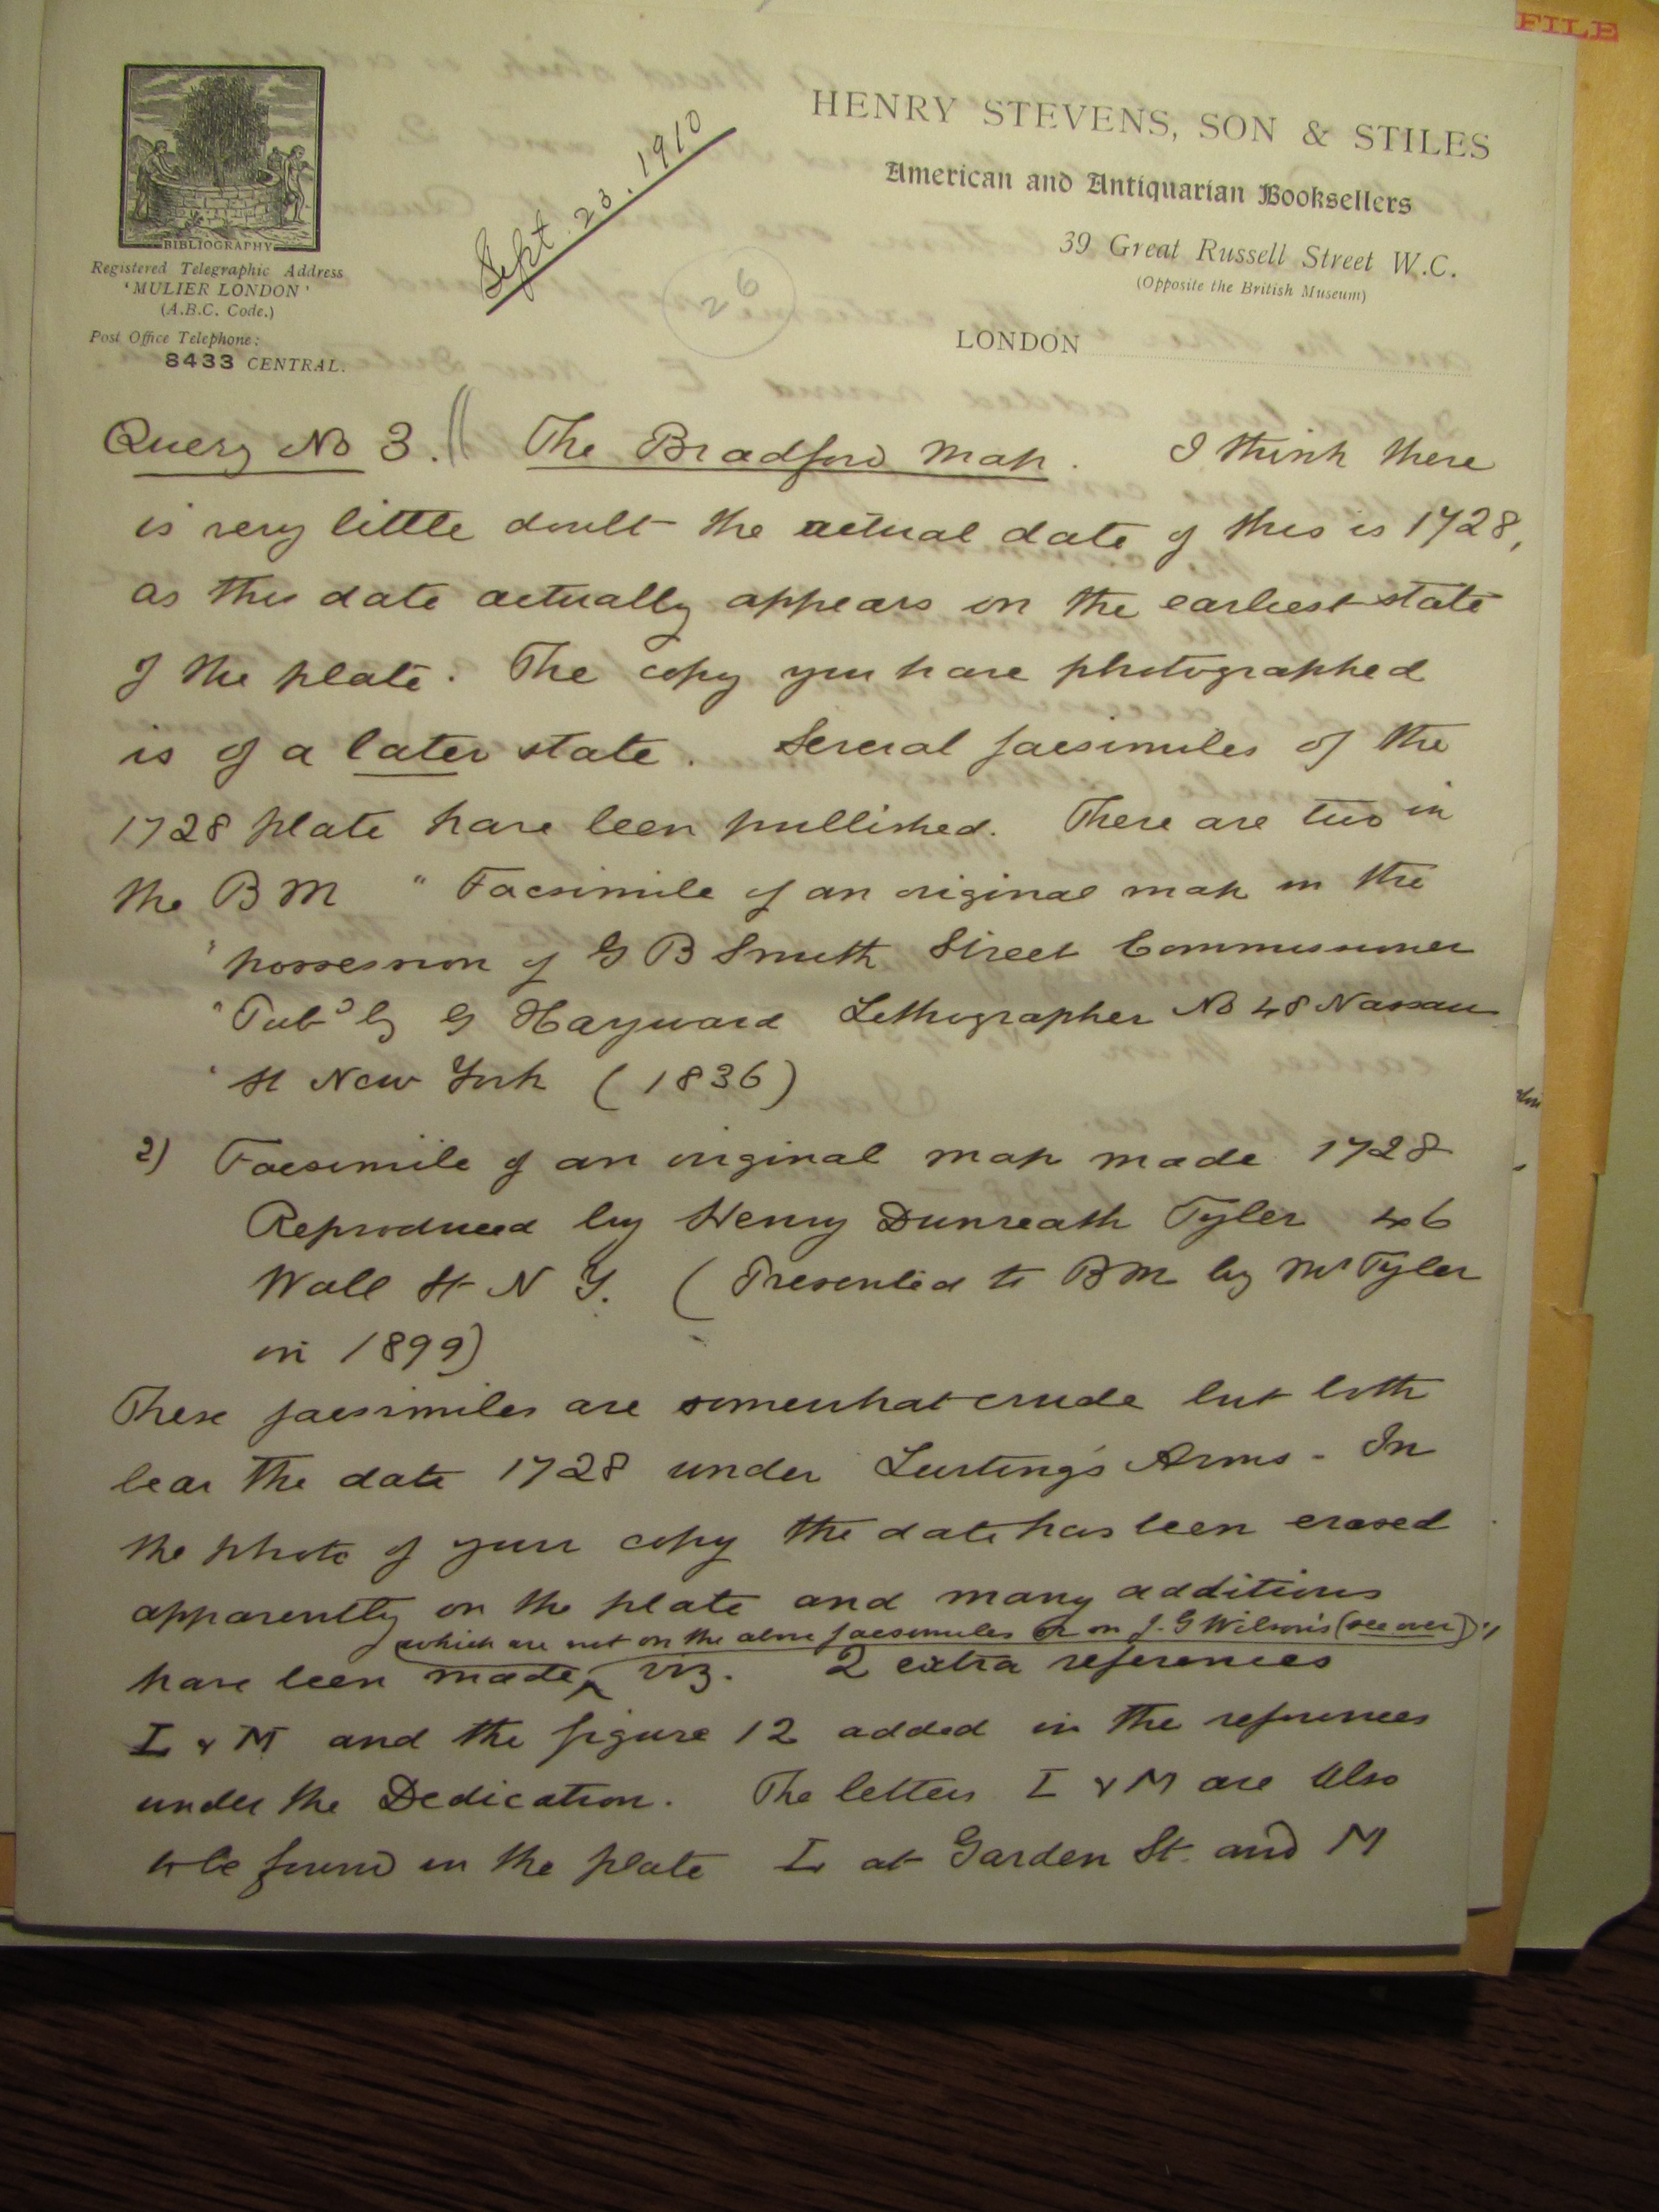 FILE
HENRY STEVENS, SON & STILES
American and Antiquarian Booksellers
39 Great Russell Street W.C.
(Opposite the British Museum)
LONDON
BIBLIOGRAPHY
Registered Telegraphic Address
'MULIER LONDON'
(A.B.C. Code.)
Post Office Telephone:
8433 CENTRAL.
Sept. 23. 1910
26
Query No 3. The Bradford Map. I think there
is very little doubt the actual date of this is 1728,
as this date actually appears on the earliest state
of the plate. The copy you have photographed
is of a later state. Several facsimiles of the
1728 plate have been published. There are two in
the BM "Facsimile of an original map in the
"possession of G B Smith Street Commissioner
"Pubd by G Hayward Lithographer No 48 Nassau
" St New York (1836)
2) Facsimile of an original map made 1728
Reproduced by Henry Dunreath Tyler 46
Wall St N Y. (Presented to BM by Mr Tyler
in 1899)
These facsimiles are somewhat crude but both
bear the date 1728 under Lurting's Arms - In
the photo of your copy the date has been erased
apparently on the plate and many additions
which are not on the above facsimiles or on J. G Wilson's (see over)
have been made, viz. 2 extra references
L & M and the figure 12 added in the references
under the Dedication. The letters L & M are also
to be found in the plate L at Garden St. and M